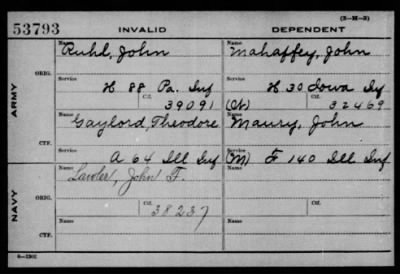 (3-H-3)
53793 INVALID DEPENDENT
Name Ruhl, John Name Mahaffey, John
ORIG.
Service H 88 Pa. Inf Service H 30 Iowa Inf
Ctf. 39091 (Ch) Ctf. 32469
ARMY
Name Gaylord, Theodore Name Maury, John
CTF.
Service A 64 Ill Inf Service (M) F 140 Ill Inf
Name Lawler, John F. Name
ORIG.
NAVY
Ctf. 38237 Ctf.
Name Name
CTF.